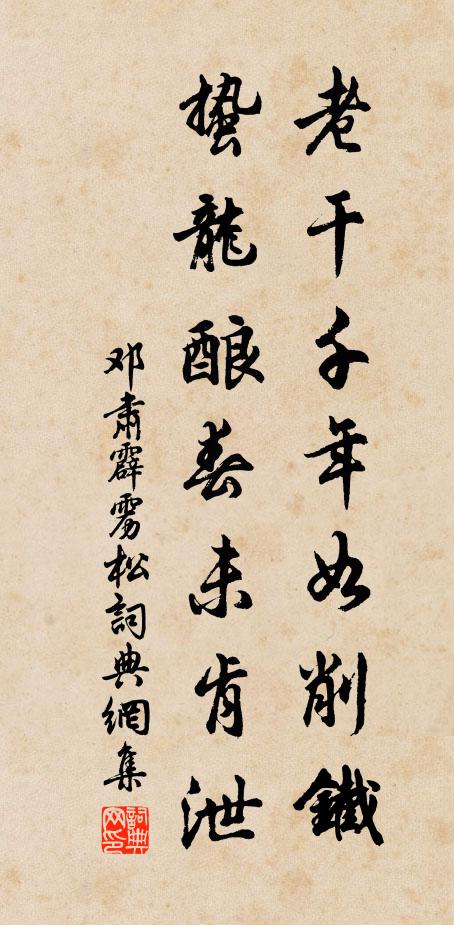 老干千年如削鐵
蟄龍酿春未肯泄
邓肅霹雳松詞典網集
詞典网印